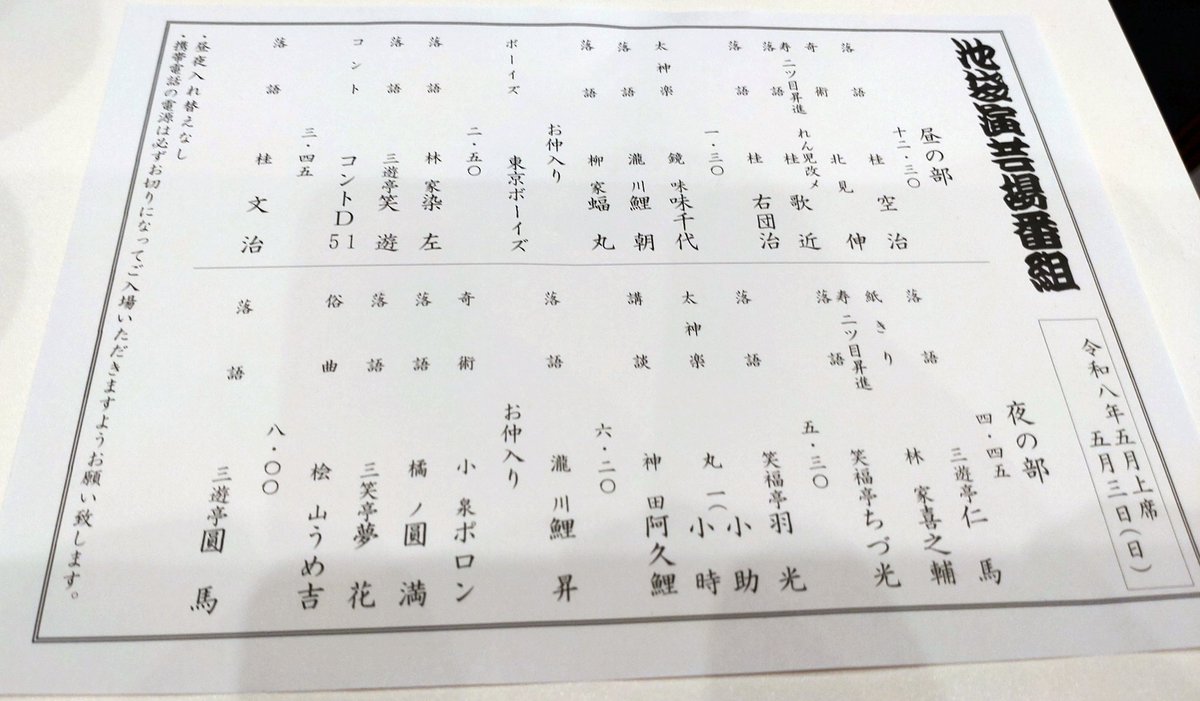 池袋演芸場番組
令和八年五月上席
五月三日(日)
昼の部
十二・三〇
落語 桂 空治
奇術 北見 伸
寿 二ツ目昇進 れん児改メ
落語 桂 歌近
落語 桂 右団治
一・三〇
太神楽 鏡味味千代
落語 瀧川鯉朝
落語 柳家蝠丸
お仲入り
ボーイズ 東京ボーイズ
二・五〇
落語 林家染左
落語 三遊亭笑遊
コント コントD51
三・四五
落語 桂 文治
夜の部
四・四五
落語 三遊亭仁馬
紙きり 林家喜之輔
寿 二ツ目昇進
落語 笑福亭ちづ光
五・三〇
落語 笑福亭羽光
太神楽 丸一(小助
小時
講談 神田阿久鯉
六・二〇
落語 瀧川鯉昇
お仲入り
奇術 小泉ポロン
落語 橘ノ圓満
落語 三笑亭夢花
俗曲 桧山うめ吉
八・〇〇
落語 三遊亭圓馬
・昼夜入れ替えなし
・携帯電話の電源は必ずお切りになってご入場いただきますようお願い致します。